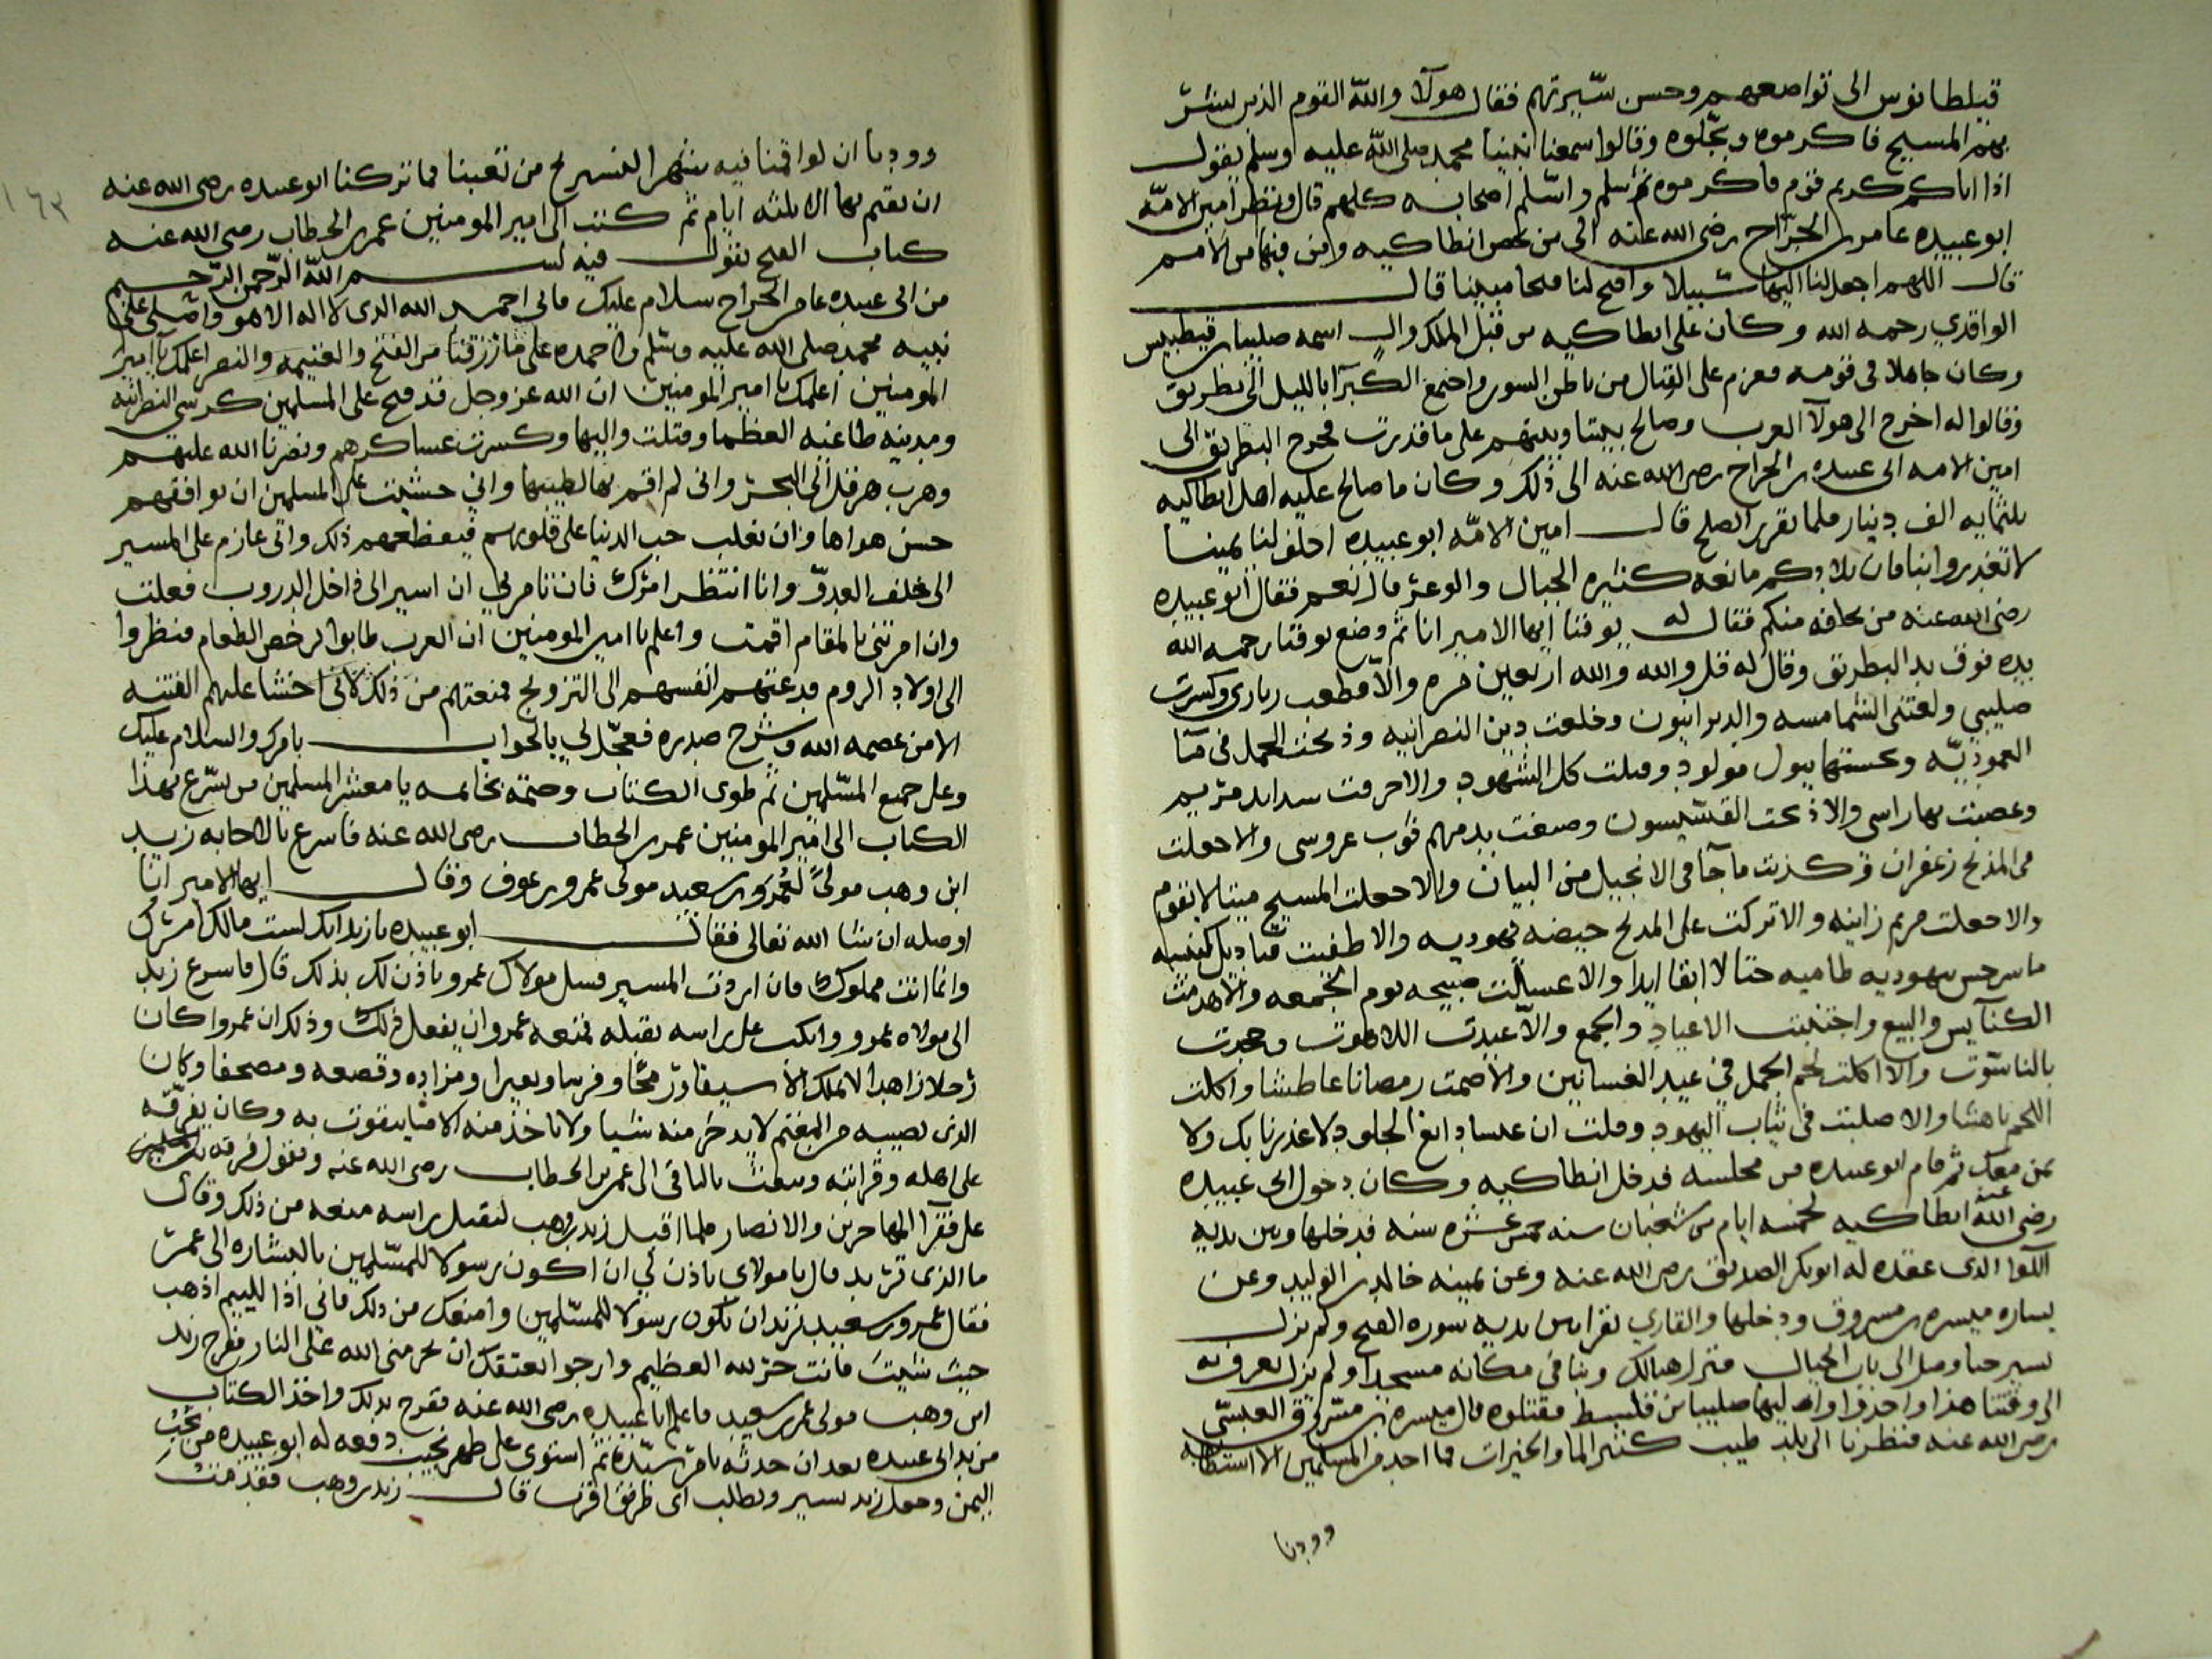 قبلطانوس الى تواضعهم وحسن سيرتهم فقال هولآء والله القوم الذين بشر
بهم المسيح فاكرموه وبجلوه وقالوا سمعنا نبينا محمد صلى الله عليه وسلم يقول
اذا اتاكم كريم قوم فاكرموه ثم سلم واسلم اصحابه كلهم قال ونظر امين الامه
ابو عبيده عامر بن الجراح رضى الله عنه الى من بحص انطاكيه ومن فيها من الامم
قال اللهم اجعل لنا اليها سبيلا وافتح لنا فتحا مبينا قال
الواقدي رحمه الله وكان على انطاكيه من قبل الملك وال اسمه صليبا بن قيطبيس
وكان جاهلا فى قومه فعزم على القتال من باطن السور واجتمع الكبرآ بالليل الى بطريق
وقالوا له اخرج الى هولآ العرب وصالح بيننا وبينهم على ما قدرت فخرج البطريق الى
امين الامه ابى عبيده بن الجراح رضى الله عنه الى ذلك وكان ما صالح عليه اهل انطاكيه
بلثمايه الف دينار فلما تقرر الصلح قال امين الامه ابو عبيده احلف لنا يمينا
لا تغدروا بنا فان بلادكم مانعه كثيره الجبال والوعر قال نعم فقال ابو عبيده
رضى الله عنه من يحلفه منكم فقال له يوقنا ايها الامير انا ثم وضع يوقنا رحمه الله
يده فوق يد البطريق وقال له قل والله والله اربعين مره والا قطعت زنارى وكسرت
صليبي ولعنتنى الشمامسه والديرانيون وخلعت دين النصرانيه وذبحت الجمل فى مآ
العموديه ونجستها ببول مولود وقتلت كل الشهود والا خرقت مريم
وعصبت بها راسى والا ذبحت القسيسون وصبغت بدمهم ثوب عروسى والا جعلت
فى المذبح زعفران وكذبت ما جآ فى الانجيل من البيان والا جعلت المسيح ميتا لا يقوم
والا جعلت مريم زانيه والا تركت على المذبح حيضه يهوديه والا طفيت قناديل كنيسه
ماسرجس يهوديه طاميه حتا لا ابقا ابدا والا غسلت صبيحه يوم الجمعه والا هدمت
الكنآيس والبيع واجتنبت الاعياد والجمع والا عبدت اللاهوت وجحدت
بالناسوت والا اكلت لحم الجمل في عيد الغسانين والا صمت رمصانا عاطشا واكلت
اللحم ناهشا والا صليت فى ثياب اليهود وقلت ان عيسا دابغ الجلود لا غدرنا بك ولا
بمن معك ثم قام ابو عبيده من مجلسه فدخل انطاكيه وكان دخول ابى عبيده
رضى الله عنه انطاكيه لخمسه ايام من شعبان سنه عشره سنه فدخلها وبين يديه
اللوا الذى عقده له ابو بكر الصديق رضى الله عنه وعن يمينه خالد بن الوليد وعن
يساره ميسره بن مسروق ودخلها والقاري يقرا بين يديه سوره الفتح ولم يزل
يسير حتا وصل الى باب الجبال فنزل هنالك وبنا فى مكانه مسجدا ولم يزل يعرف به
الى وقتنا هذا واخذوا واليها صليبا فقتلوه قال ميسره بن مسروق العبسي
رضى الله عنه فنظرنا الى بلد طيب كثير الما والخيرات فما احد من المسلمين الا استطابه
وودنا
وودنا ان لو اقمنا فيه شهرا لنستريح من تعبنا فما تركنا ابو عبيده رضى الله عنه
ان نقيم بها الا ثلثه ايام ثم كتب الى امير المومنين عمر بن الخطاب رضى الله عنه
كتاب الفتح يقول فيه بسم الله الرحمن الرحيم
من ابى عبيده عامر بن الجراح سلام عليك فانى احمد الله الذى لا اله الا هو واصلى على
نبيه محمد صلى الله عليه وسلم واحمده على ما رزقنا من الفتح والغنيمه والنصر اعلمك يا امير
المومنين اعلمك يا امير المومنين ان الله عز وجل قد فتح على المسلمين كرسى النصرانيه
ومدينه طاغيه العظما وقتلت واليها وكسرت عساكرهم ونصرنا الله عليهم
وهرب هرقل الى البحر وانى لم اقم بها لطيبها واني خشيت على المسلمين ان يوافقهم
حسن هواها وان يغلب حب الدنيا على قلوبهم فيعظعهم ذلك وانى عازم على المسير
الى حلف العدو وانا انتظر امرك فان تامرني ان اسير الى داخل الدروب فعلت
وان امرتنى بالمقام اقمت واعلم يا امير المومنين ان العرب طابوا لرخص الطعام فنظروا
الى اولاد الروم فدعتهم انفسهم الى التزويج فمنعتهم من ذلك لاني اخشا عليهم الفتنه
الا من عصمه الله وشرح صدره فعجل لي بالجواب بامرك والسلام عليك
وعلى جميع المسلمين ثم طوى الكتاب وختمه بخاتمه يا معشر المسلمين من يسرع بهذا
الكتاب الى امير المومنين عمر بن الخطاب رضى الله عنه فاسرع بالاجابه زيد
ابن وهب مولى لعمرو بن سعيد مولى عمرو بن عوف وقال ايها الامير انا
اوصله ان شا الله تعالى فقال ابو عبيده يا زيد انك لست مالك امرك
وانما انت مملوك فان اردت المسير فسل مولاك عمرو ياذن لك بذلك قال فاسرع زيد
الى مولاه عمرو وانكب على راسه يقبله فمنعه عمرو ان يفعل ذلك وذلك ان عمروا كان
رجلا زاهدا لا يملك الا سيفا ورمحا وفرسا وبعيرا ومزاده وقصعه ومصحفا وكان
الذى يصيبه من المغنم لا يدخر منه شيا ولا ياخذ منه الا ما يتقوت به وكان يفرقه
على اهله وقرابته ويبعث بالباقى الى عمر بن الخطاب رضى الله عنه ويقول فرقه
على فقرآ المهاجرين والانصار فلما اقبل زيد بن وهب ليقبل راسه منعه من ذلك وقال
ما الذى تريد قال يا مولاى تاذن لي ان اكون رسولا للمسلمين بالبشاره الى عمر
فقال عمرو بن سعيد تريد ان تكون رسولا للمسلمين وامنعك من ذلك فاني اذا للييم اذهب
حيث شيت فانت حر لله العظيم وارجوا بعتقك ان يحرمنى الله على النار ففرح زيد
ابن وهب مولى عمر بن سعيد فاعلم ابا عبيده رضى الله عنه ففرح بذلك واخذ الكتاب
من يد ابى عبيده بعد ان حدثه بامر سيده ثم استوى على ظهر نجيب دفعه له ابو عبيده من نجب
اليمن وجعل زيد يسير ويطلب اى طريق اقرب قال زيد بن وهب فقدمت
١٦٣